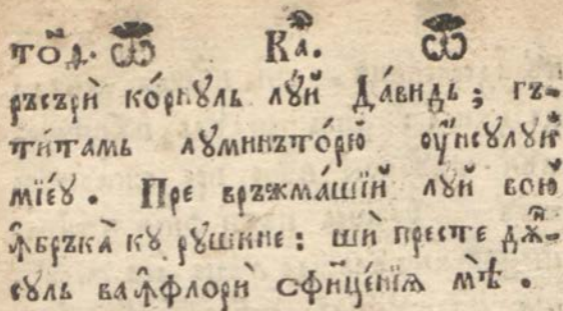 то́д. Ѿ Ка҃. Ѿ
ръсърѝ ко́рнꙋль лꙋ́й Да́видь; гъ-
ти́тамь лꙋминъто́рю̆ оу҆́нсꙋлꙋй
мїе́ꙋ. Пре връжма́шїй лꙋй вою̆
ꙟ҆бръка̀ кꙋ рꙋшине: шѝ песте дꙟ҆-
сꙋль ва ꙟ҆флорѝ сфи҆нце́нїѧ мѣ̀.